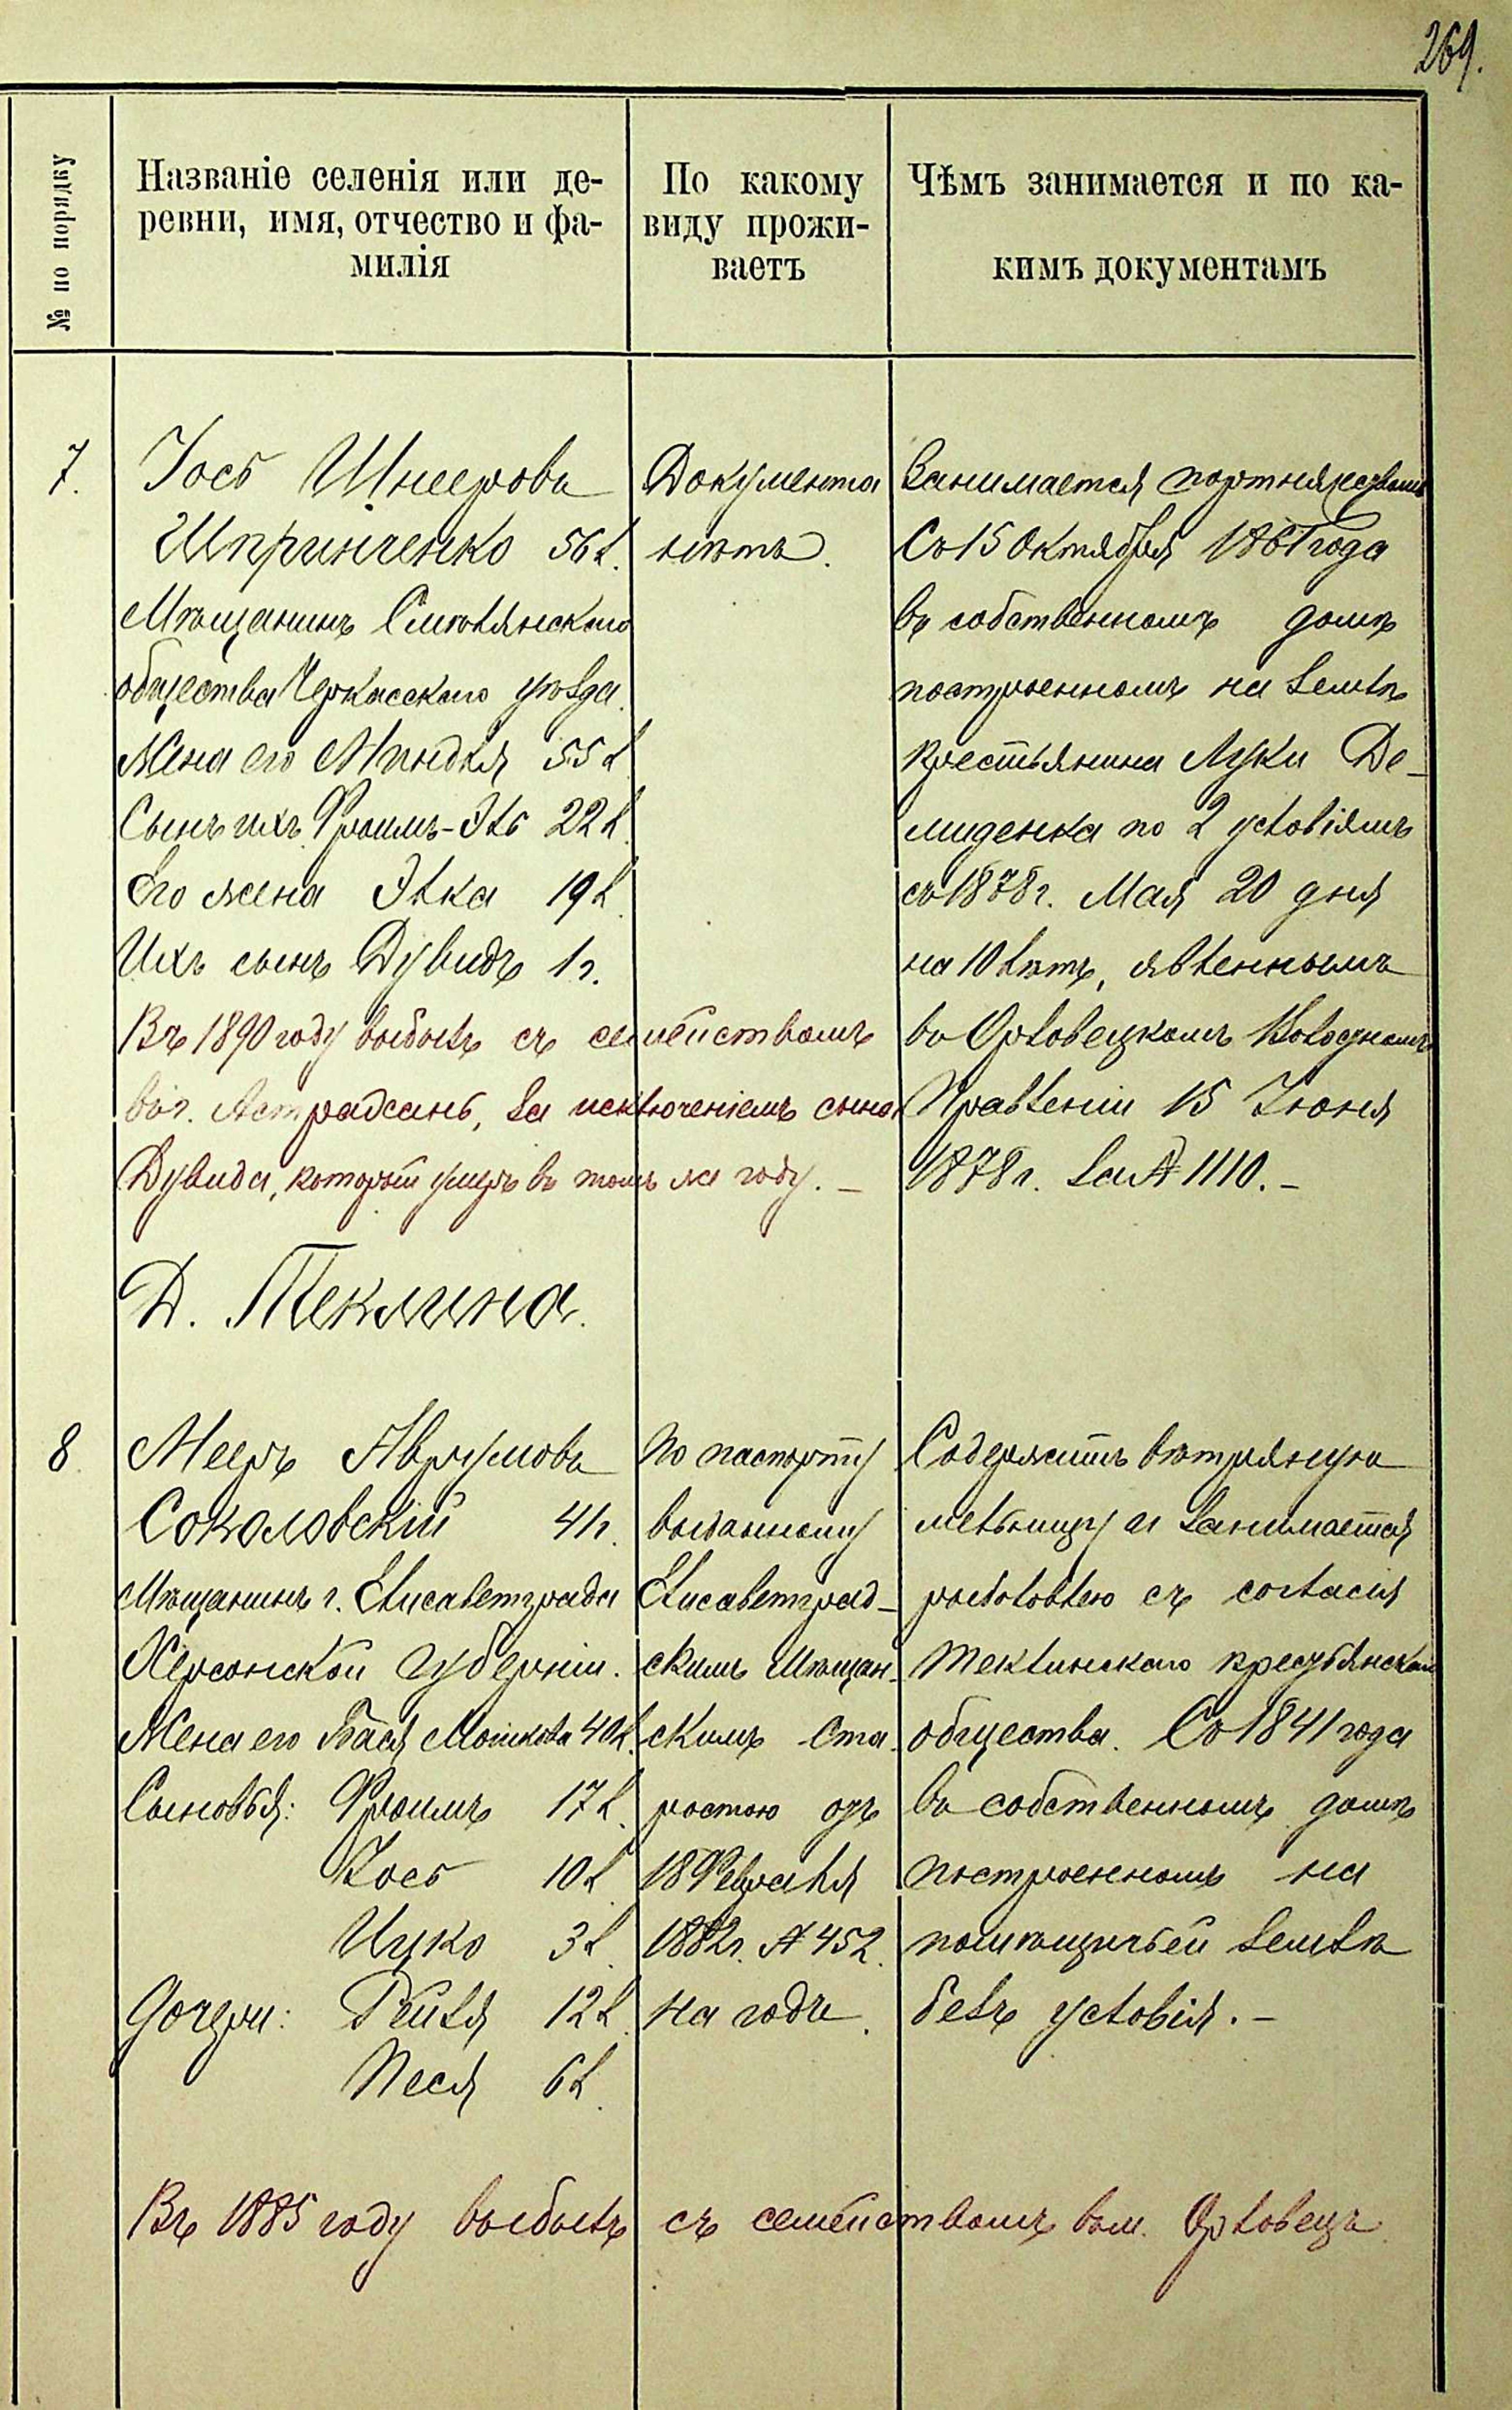 269.
№ по порядку
Названіе селенія или де-
ревни, имя, отчество и фа-
милія
По какому
виду прожи-
ваетъ
Чѣмъ занимается и по ка-
кимъ документамъ
7.
Іось Шнеерова
Шпринченко 56 л.
Мѣщанинъ Смѣлянскаго
общества Черкасскаго уѣзда.
Жена его Миндля 55 л
Сынъ ихъ Фроимъ-Эль 22 л
Его жена Элка 19 л.
Ихъ сынъ Дувидъ 1 г.
Документа
нѣтъ.
Занимается портняжествомъ
Съ 15 Октября 1861 года
въ собственномъ домѣ
построенномъ на землѣ
крестьянина Луки Де-
миденка по 2 условіямъ
съ 1878 г. Мая 20 дня
на 10 лѣтъ, явленнымъ
въ Орловецкомъ Волостномъ
Правленіи 15 Іюня
1878 г. за № 1110. –
Въ 1890 году выбылъ съ семействомъ
въ г. Астрахань, за исключеніемъ сына
Дувида, который умеръ въ томъ же году. –
Д. Теклина.
8
Мееръ Аврумовъ
Соколовскій 41 г.
Мѣщанинъ г. Елисаветграда
Херсонской губерніи.
Жена его Бася Мошкова 40 л.
Сыновья: Фроимъ 17 л.
Іось 10 л
Ицко 3 л.
Дочери: Рейзя 12 л.
Песя 6 л.
По паспорту
выданному
Елисаветград-
скимъ Мѣщан-
скимъ Ста-
ростою отъ
18 Февраля
1882 г. № 452.
на годъ.
Содержитъ вѣтряную
мельницу и занимается
рыболовлею съ согласія
Теклинскаго крестьянскаго
общества. Съ 1841 года
въ собственномъ домѣ
построенномъ на
помѣщичьей землѣ
безъ условія. –
Въ 1885 году выбылъ съ семействомъ въ м. Орловецъ.